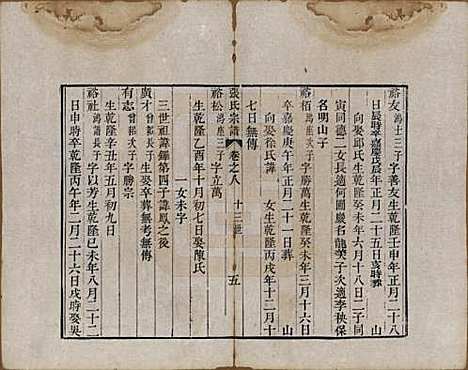 裕友鴻士三子字善友生乾隆壬申年正月二十八
日辰時卒嘉慶戊辰年正月二十五日亥時葬 山
向娶邱氏生乾隆癸未年六月十八日二子同
寅同德二女長適何圖慶名龍美子次適李秧保
名明山子
裕栢鴻座次子字勝萬生乾隆癸未年三月十六日
卒嘉慶庚午年正月二十一日葬 山
向娶徐氏諱 女生乾隆丙戌年十二月十
七日無傳
張氏宗譜 卷之八 十三世 五
裕松鴻座三子字立萬
生乾隆乙酉年十月初七日娶陳氏
一女未字
三世祖諱鐸第四子諱鳳之後
廣才曾祁長子生娶卒葬無考無傳
有志曾祁次子字勝宗
生乾隆辛丑年五月初九日
裕社鴻壽長子字以芳生乾隆己未年八月二十二
日申時卒乾隆丙午年二月二十六日戌時娶吳